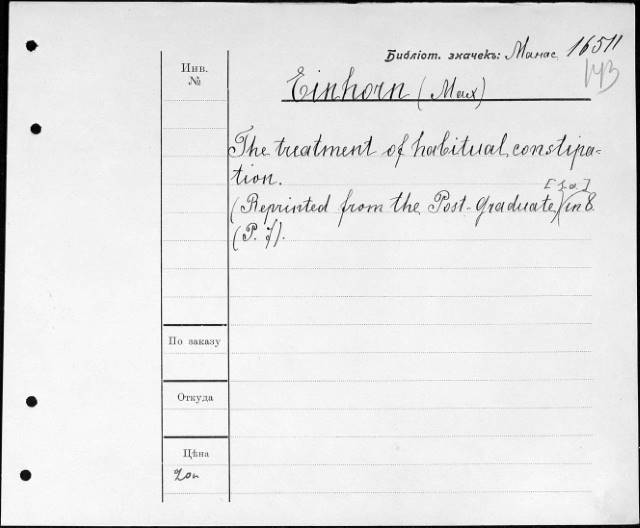 Библіот. значекъ: Манас. 16511
143
Инв.
№
Einhorn (Max)
The treatment of habitual constipa=
tion.
[s.a.]
(Reprinted from the Post-Graduate) in 8
(P. 7).
По заказу
Откуда
Цѣна